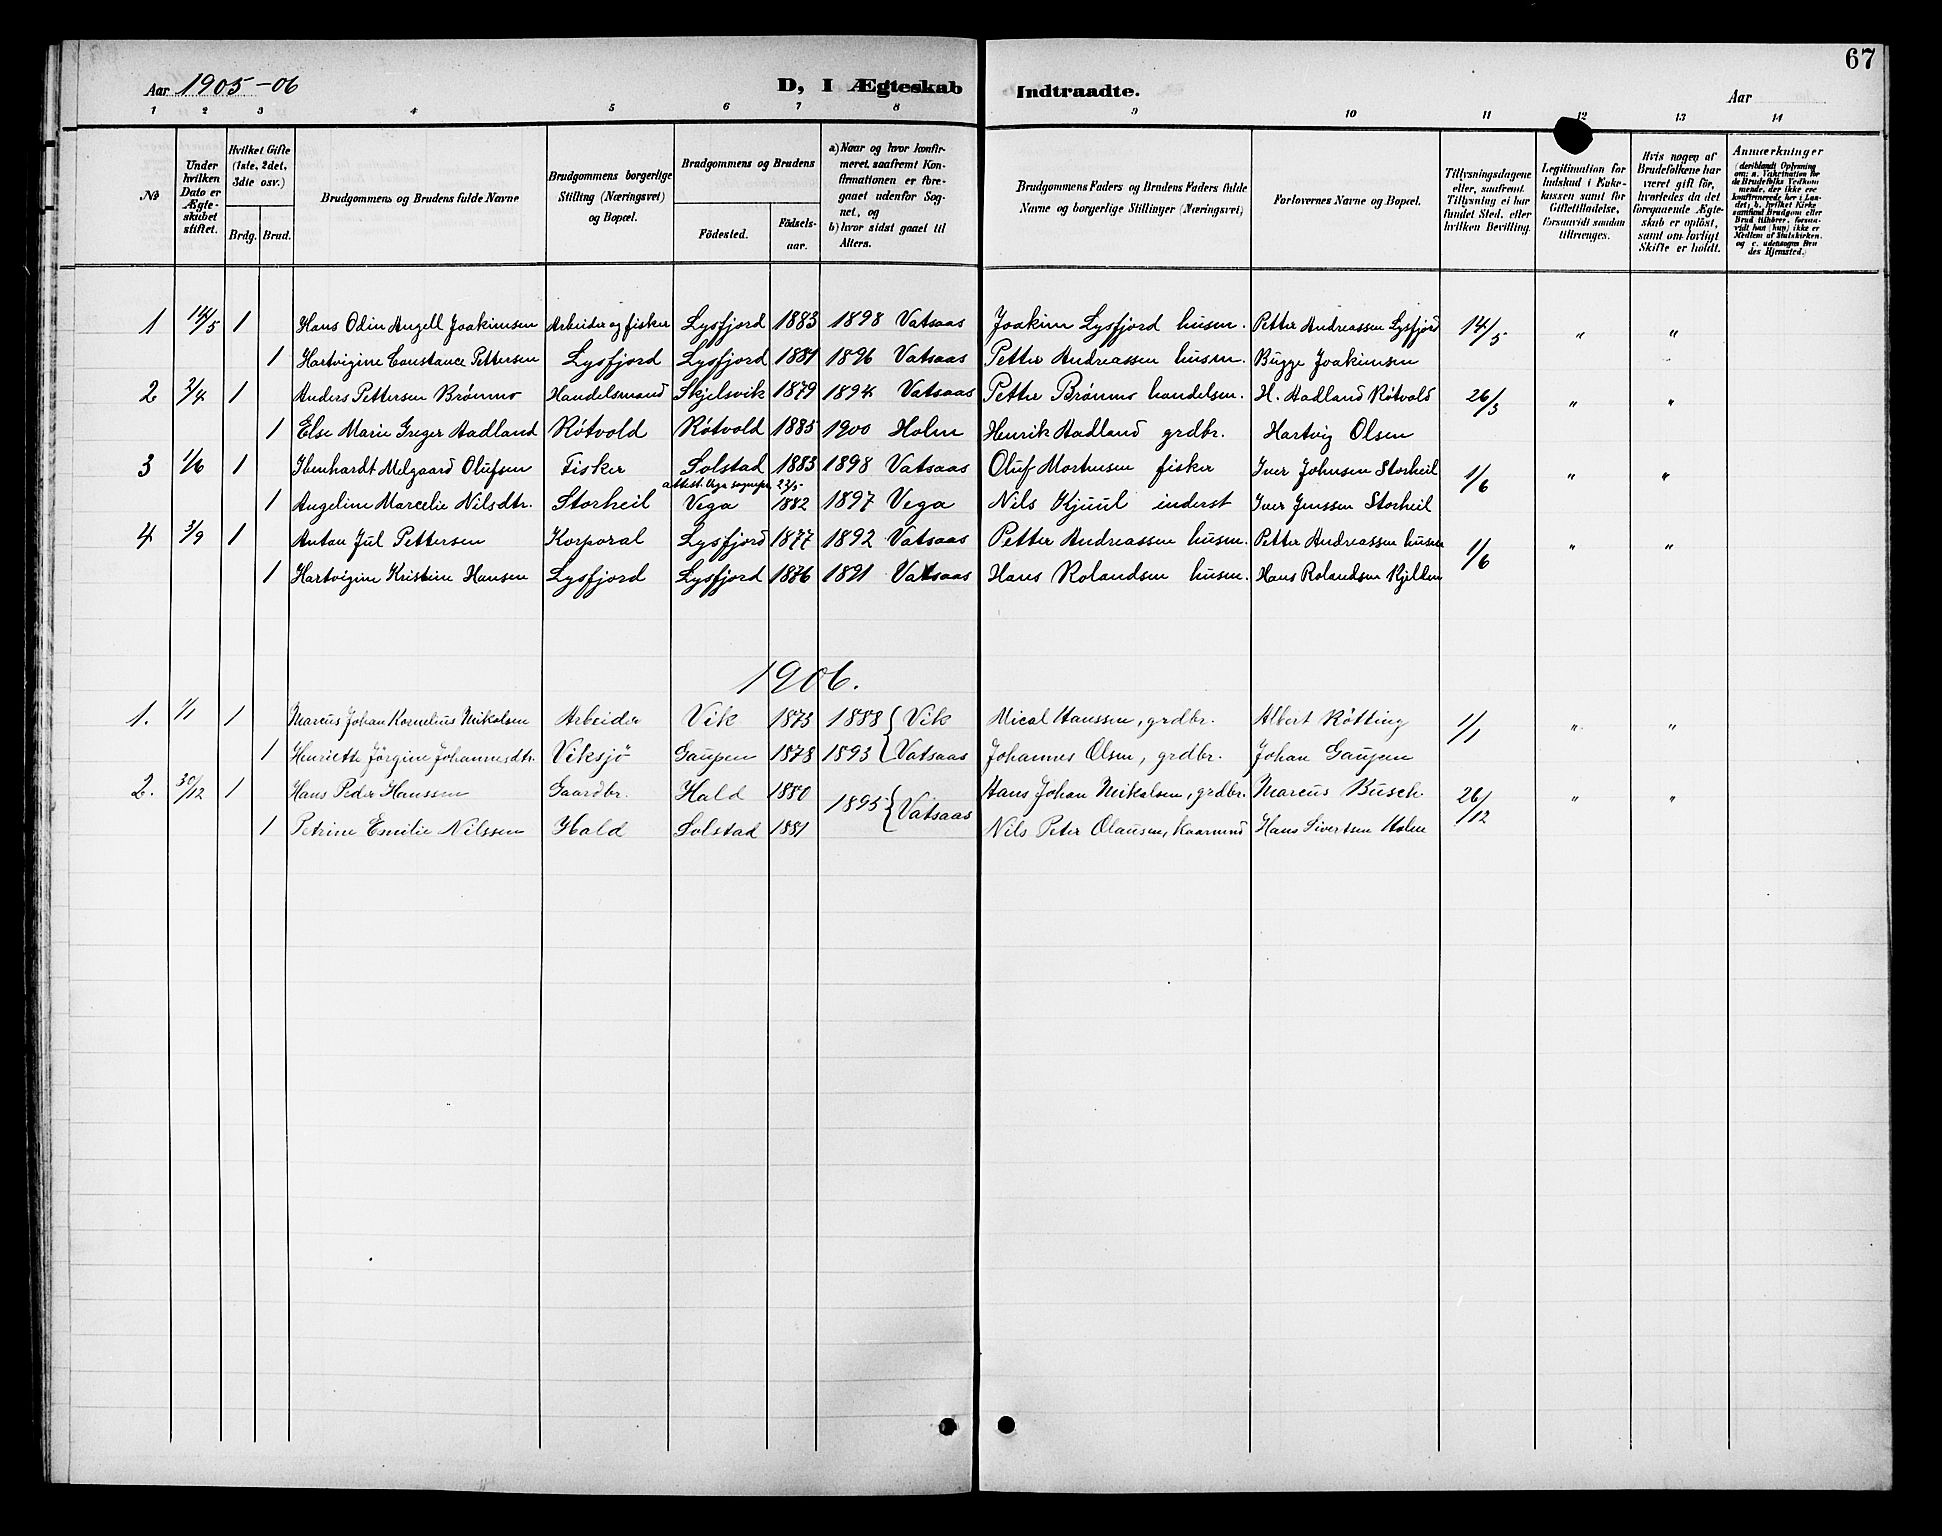 67
Aar 1905-06 D, I Ægteskab Indtraadte. Aar
1 2 3 4 5 6 7 8 9 10 11 12 13 14
№
Under hvilken Dato er Ægteskabet stiftet.
Hvilket Gifte (1ste, 2det, 3die osv.)
Brdg. Brud.
Brudgommens og Brudens fulde Navne
Brudgommens borgerlige Stilling (Næringsvei) og Bopæl.
Brudgommens og Brudens
Födested. Födselsaar.
a) Naar og hvor konfirmeret, saafremt Konfirmationen er foregaaet udenfor Sognet, og
b) hvor sidst gaaet til Alters.
Brudgommens Faders og Brudens Faders fulde Navne og borgerlige Stillinger (Næringsvei)
Forlovernes Navne og Bopæl.
Tillysningsdagene eller, saafremt Tillysning ei har fundet Sted, efter hvilken Bevilling.
Legitimation for Indskud i Enkekassen samt for Giftetilladelse, forsaavidt saadan tiltrænges.
Hvis nogen af Brudefolkene har været gift för, hvorledes da det foregaaende Ægteskab er oplöst, samt om lovligt Skifte er holdt.
Anmærkninger (deriblandt Oplysning om: a. Vakcination for de Brudefolks Vedkommende, der ikke ere konfirmerede her i Landet; b. hvilket Kirkesamfund Brudgom eller Brud tilhörer, forsaavidt han (hun) ikke er Medlem af Statskirken, og c. udensogns Brudes Hjemsted.)
1 14/5 1 Hans Odin Angell Joakimsen Arbeider og fisker Lysfjord 1883 1898 Vatsaas Joakim Lysfjord husm. Petter Andreassen Lysfjord 14/5 " "
1 Hartvigine Constance Pettersen Lysfjord Lysfjord 1881 1896 Vatsaas Petter Andreassen husm. Bugge Joakimsen
2 2/4 1 Anders Pettersen Brönmo Handelsmand Skjelsvik 1879 1894 Vatsaas Petter Brönmo handelsm. H. Aadland Rötvold 26/3 " "
1 Else Marie Greger Aadland Rötvold Rötvold 1885 1900 Holm Henrik Aadland grdbr. Hartvig Olsen
3 1/6 1 Ibenhardt Melgaard Olufsen Fisker Solstad 1883 1898 Vatsaas Oluf Mortensen fisker Iver Johnsen Storheil 1/6 " "
attest. Vega sognepr. 23/5
1 Angeline Marcelie Nilsdtr. Storheil Vega 1882 1897 Vega Nils Kjuul inderst Iver Jenssen Storheil
4 3/9 1 Anton Jul Pettersen Korporal Lysfjord 1877 1892 Vatsaas Petter Andreassen husm. Petter Andreassen husm 1/6 " "
1 Hartvigine Kristine Hansen Lysfjord Lysfjord 1876 1891 Vatsaas Hans Rolandsen husm. Hans Rolandsen Kjelden
1906.
1. 1/1 1 Marcus Johan Kornelius Mikalsen Arbeider Vik 1873 1888 Vik Mical Hanssen, grdbr. Albert Rötting 1/1 " "
1 Henriette Jörgine Johannesdtr. Viksjö Gaupen 1878 1893 Vatsaas Johannes Olsen, grdbr. Johan Gaupen
2. 30/12 1 Hans Peder Hanssen Gaardbr. Hald 1880 1895 Vatsaas Hans Johan Mikalsen, grdbr. Marcus Busch 26/12 " "
1 Petrine Emilie Nilssen Hald Solstad 1881 Nils Peter Olausen, Kaarmnd Hans Sivertsen Holm